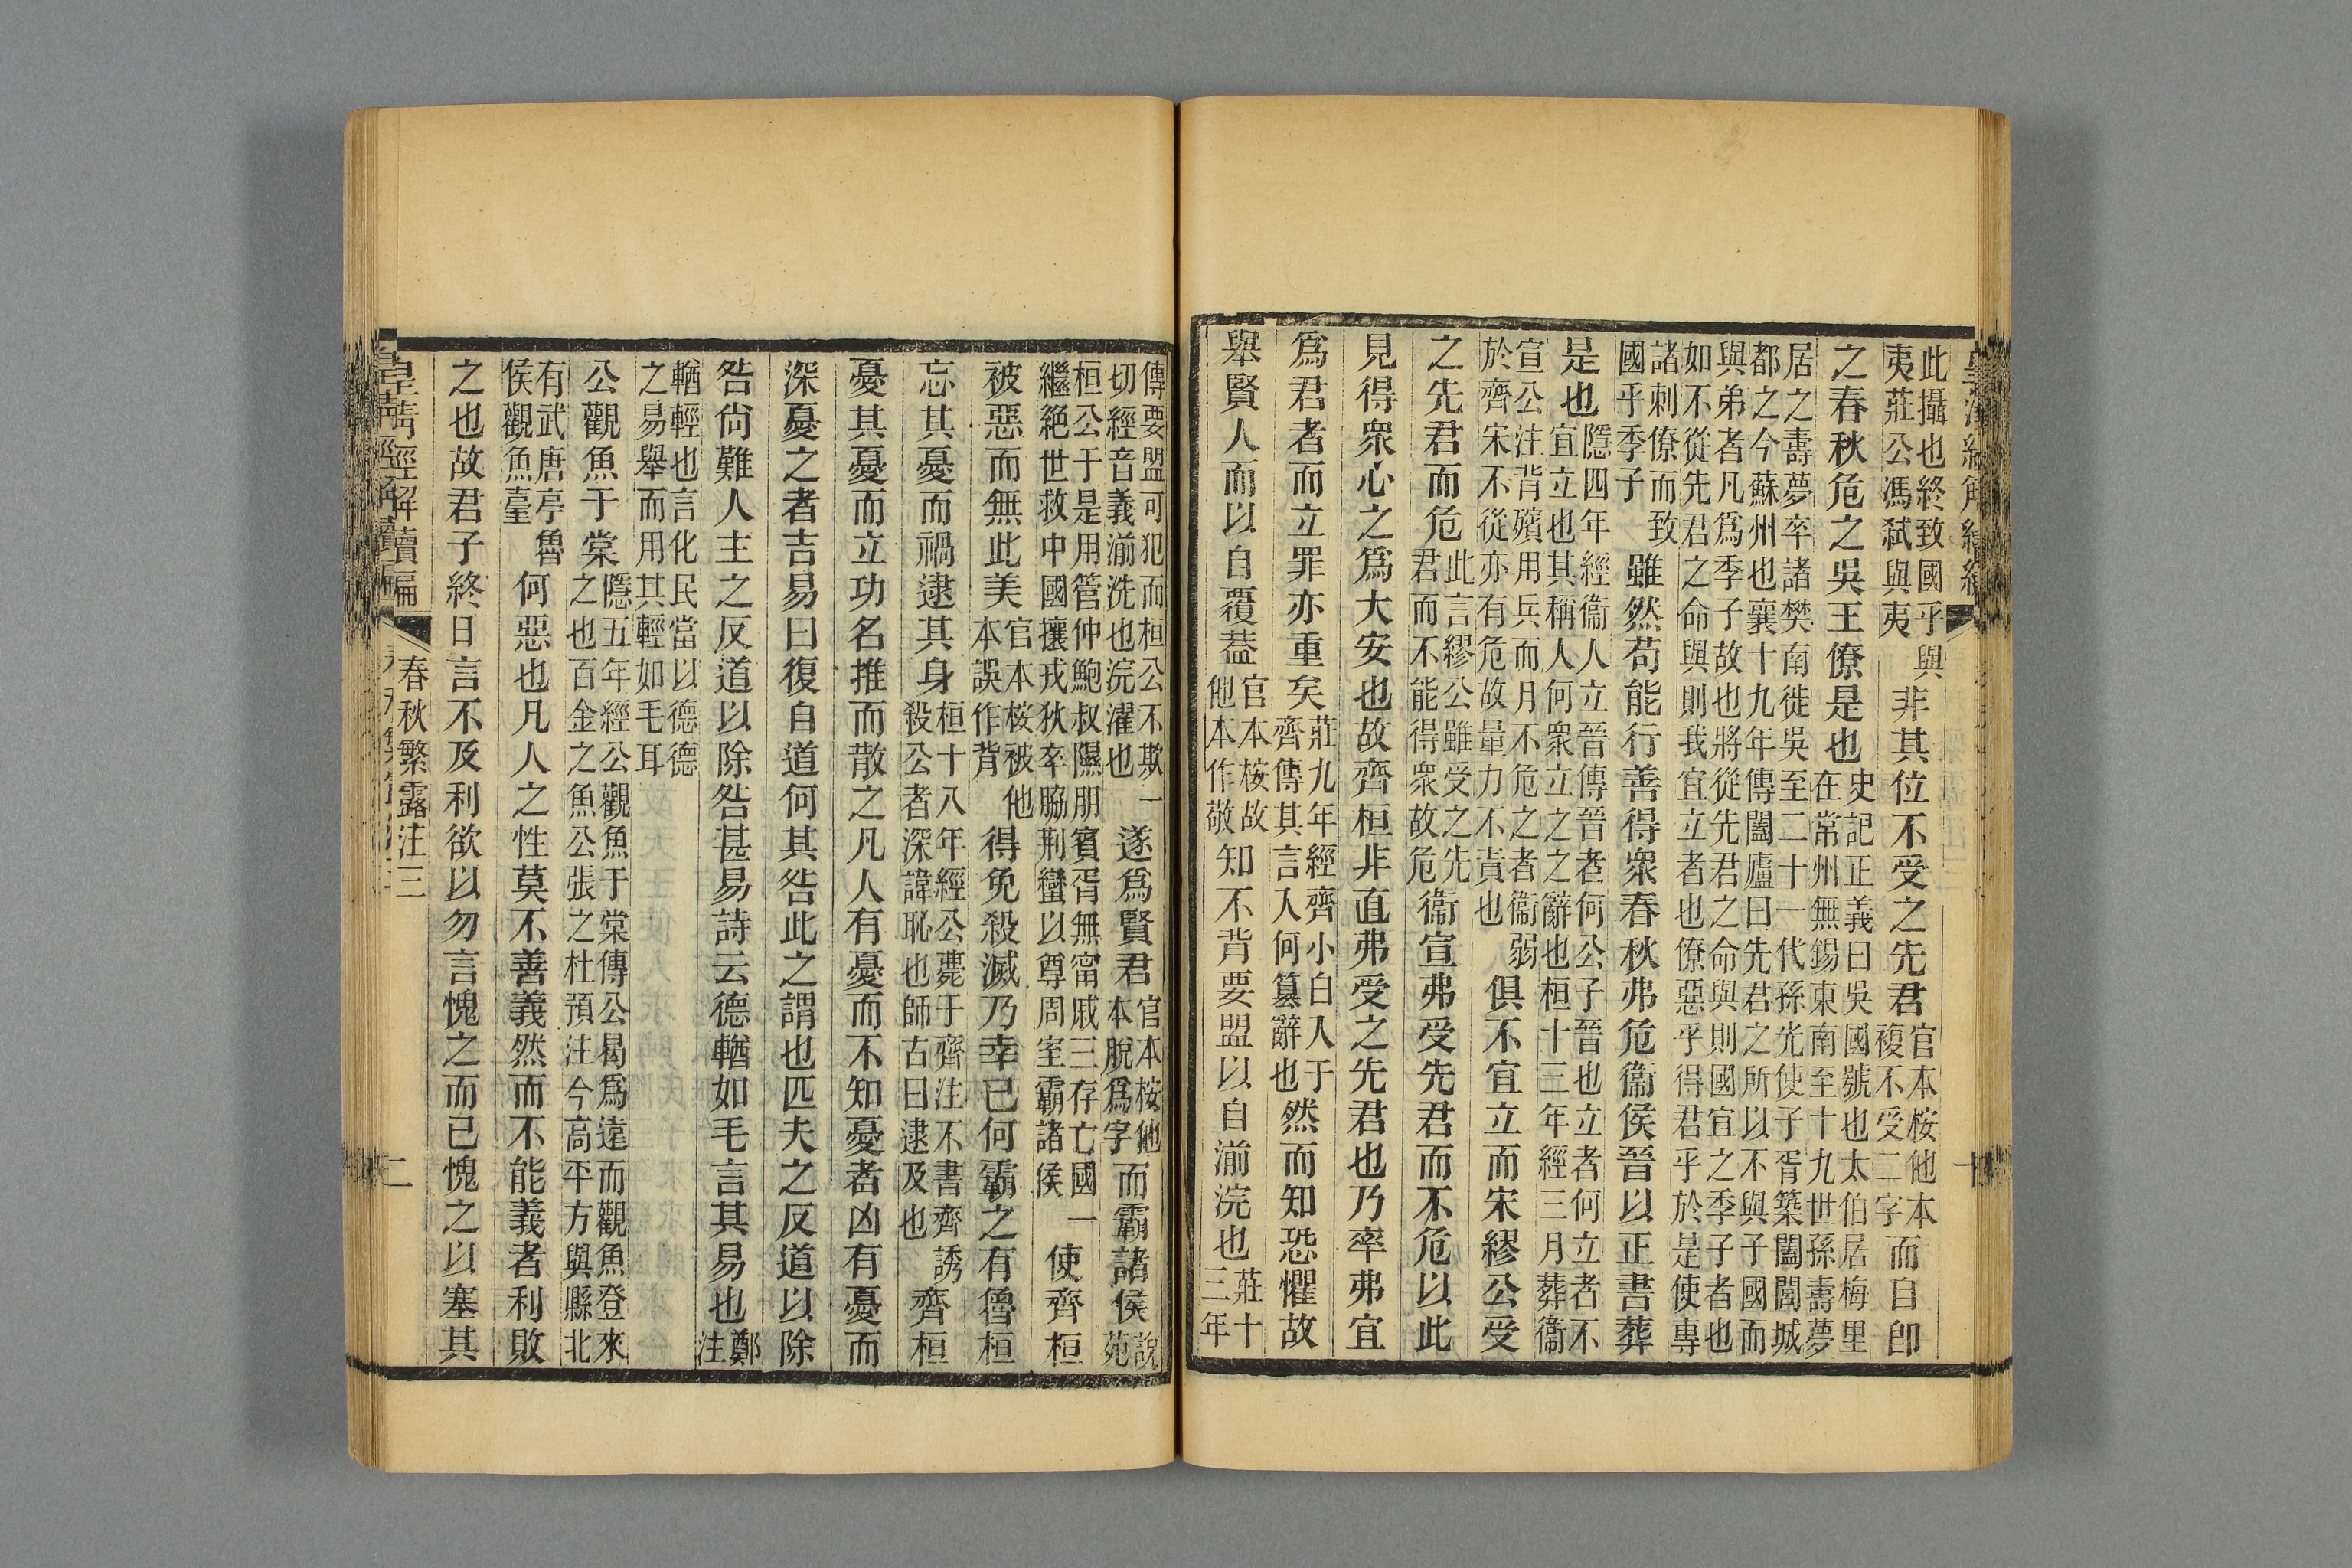 此攝也終致國乎與
夷莊公馮弒與夷
非其位不受之先君
官本桉他本
複不受二字
而自卽
之春秋危之吳王僚是也
史記正義曰吳國號也太伯居梅里
在常州無錫東南至十九世孫壽夢
居之壽夢卒諸樊南徙吳至二十一代孫光使子胥築闔閭城
都之今蘇州也襄十九年傳闔廬曰先君之所以不與子國而
與弟者凡爲季子故也將從先君之命與則國宜之季子者也
如不從先君之命與則我宜立者也僚惡乎得君乎於是使專
諸刺僚而致
國乎季子
雖然苟能行善得眾春秋弗危衞侯晉以正書葬
是也
隱四年經衞人立晉傳晉者何公子晉也立者何立者不
宜立也其稱人何眾立之之辭也桓十三年經三月葬衞
宣公注背殯用兵而月不危之者衞弱
於齊宋不從亦有危故量力不責也
俱不宜立而宋繆公受
之先君而危
此言繆公雖受之先
君而不能得眾故危
衞宣弗受先君而不危以此
見得眾心之爲大安也故齊桓非直弗受之先君也乃率弗宜
爲君者而立罪亦重矣
莊九年經齊小白入于
齊傳其言入何篡辭也
然而知恐懼故
舉賢人而以自覆葢
官本桉故
他本作敬
知不背要盟以自湔浣也
莊十
三年
傳要盟可犯而桓公不欺一
切經音義湔洗也浣濯也
遂爲賢君
官本桉他
本脫爲字
而霸諸侯
說
苑
桓公于是用管仲鮑叔隰朋賓胥無甯戚三存亡國一
繼絕世救中國攘戎狄卒脇荆蠻以尊周室霸諸侯
使齊桓
被惡而無此美
官本桉被他
本誤作背
得免殺滅乃幸已何霸之有魯桓
忘其憂而禍逮其身
桓十八年經公薨于齊注不書齊誘
殺公者深諱恥也師古曰逮及也
齊桓
憂其憂而立功名推而散之凡人有憂而不知憂者凶有憂而
深憂之者吉易曰復自道何其咎此之謂也匹夫之反道以除
咎尙難人主之反道以除咎甚易詩云德輶如毛言其易也
鄭
注
輶輕也言化民當以德德
之易舉而用其輕如毛耳
公觀魚于棠
隱五年經公觀魚于棠傳公曷爲遠而觀魚登來
之也百金之魚公張之杜預注今高平方與縣北
有武唐亭魯
侯觀魚臺
何惡也凡人之性莫不善義然而不能義者利敗
之也故君子終日言不及利欲以勿言愧之而已愧之以塞其
皇淸經解續編
春秋繁露注三
二